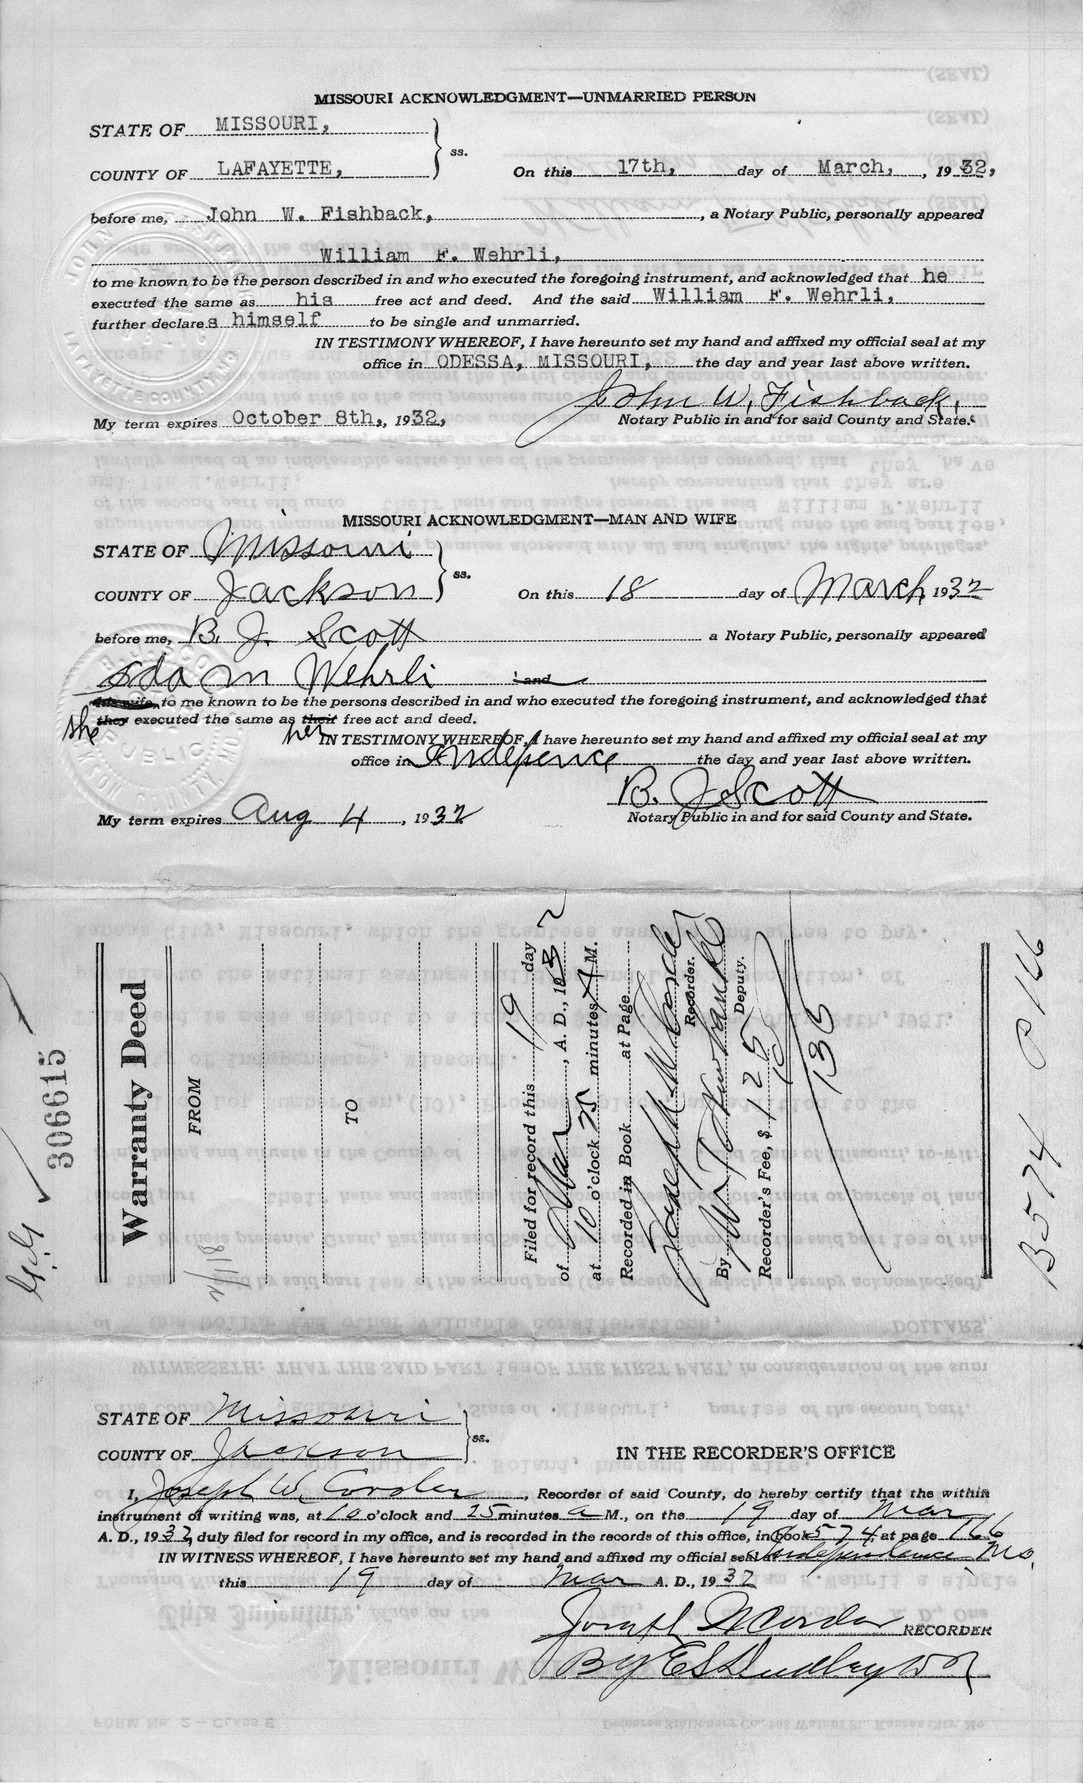 MISSOURI ACKNOWLEDGMENT—UNMARRIED PERSON
STATE OF MISSOURI,
COUNTY OF LAFAYETTE, ss. On this 17th, day of March, , 1932,
before me, John W. Fishback, , a Notary Public, personally appeared
William F. Wehrli,
to me known to be the person described in and who executed the foregoing instrument, and acknowledged that he
executed the same as his free act and deed. And the said William F. Wehrli,
further declares himself to be single and unmarried.
IN TESTIMONY WHEREOF, I have hereunto set my hand and affixed my official seal at my
office in ODESSA, MISSOURI, the day and year last above written.
John W. Fishback.
My term expires October 8th,, 1932, Notary Public in and for said County and State.
MISSOURI ACKNOWLEDGMENT—MAN AND WIFE
STATE OF Missouri
COUNTY OF Jackson ss. On this 18 day of March 1932
before me, B. J. Scott a Notary Public, personally appeared
Ida M Wehrli and
his wife, to me known to be the persons described in and who executed the foregoing instrument, and acknowledged that
she they executed the same as their free act and deed.
her IN TESTIMONY WHEREOF, I have hereunto set my hand and affixed my official seal at my
office in Indepence the day and year last above written.
B. J Scott
My term expires Aug 4 , 1932 Notary Public in and for said County and State.
306615
Warranty Deed
FROM
TO
Filed for record this 19 day
of Mar , A. D., 1932
at 10 o'clock 25 minutes A M.
Recorded in Book at Page
Joseph W. Corder
Recorder.
By
Deputy.
Recorder's Fee, $ 1 25
10
135
B574 P166
STATE OF Missouri
COUNTY OF Jackson ss. IN THE RECORDER'S OFFICE
I, Joseph W. Corder , Recorder of said County, do hereby certify that the within
instrument of writing was, at 10 o'clock and 25 minutes a M., on the 19 day of Mar
A. D., 1932, duly filed for record in my office, and is recorded in the records of this office, in book 574, at page 166
IN WITNESS WHEREOF, I have hereunto set my hand and affixed my official seal at Independence Mo.
this 19 day of Mar A. D., 1932
Joseph W Corder RECORDER
By E S Dudley